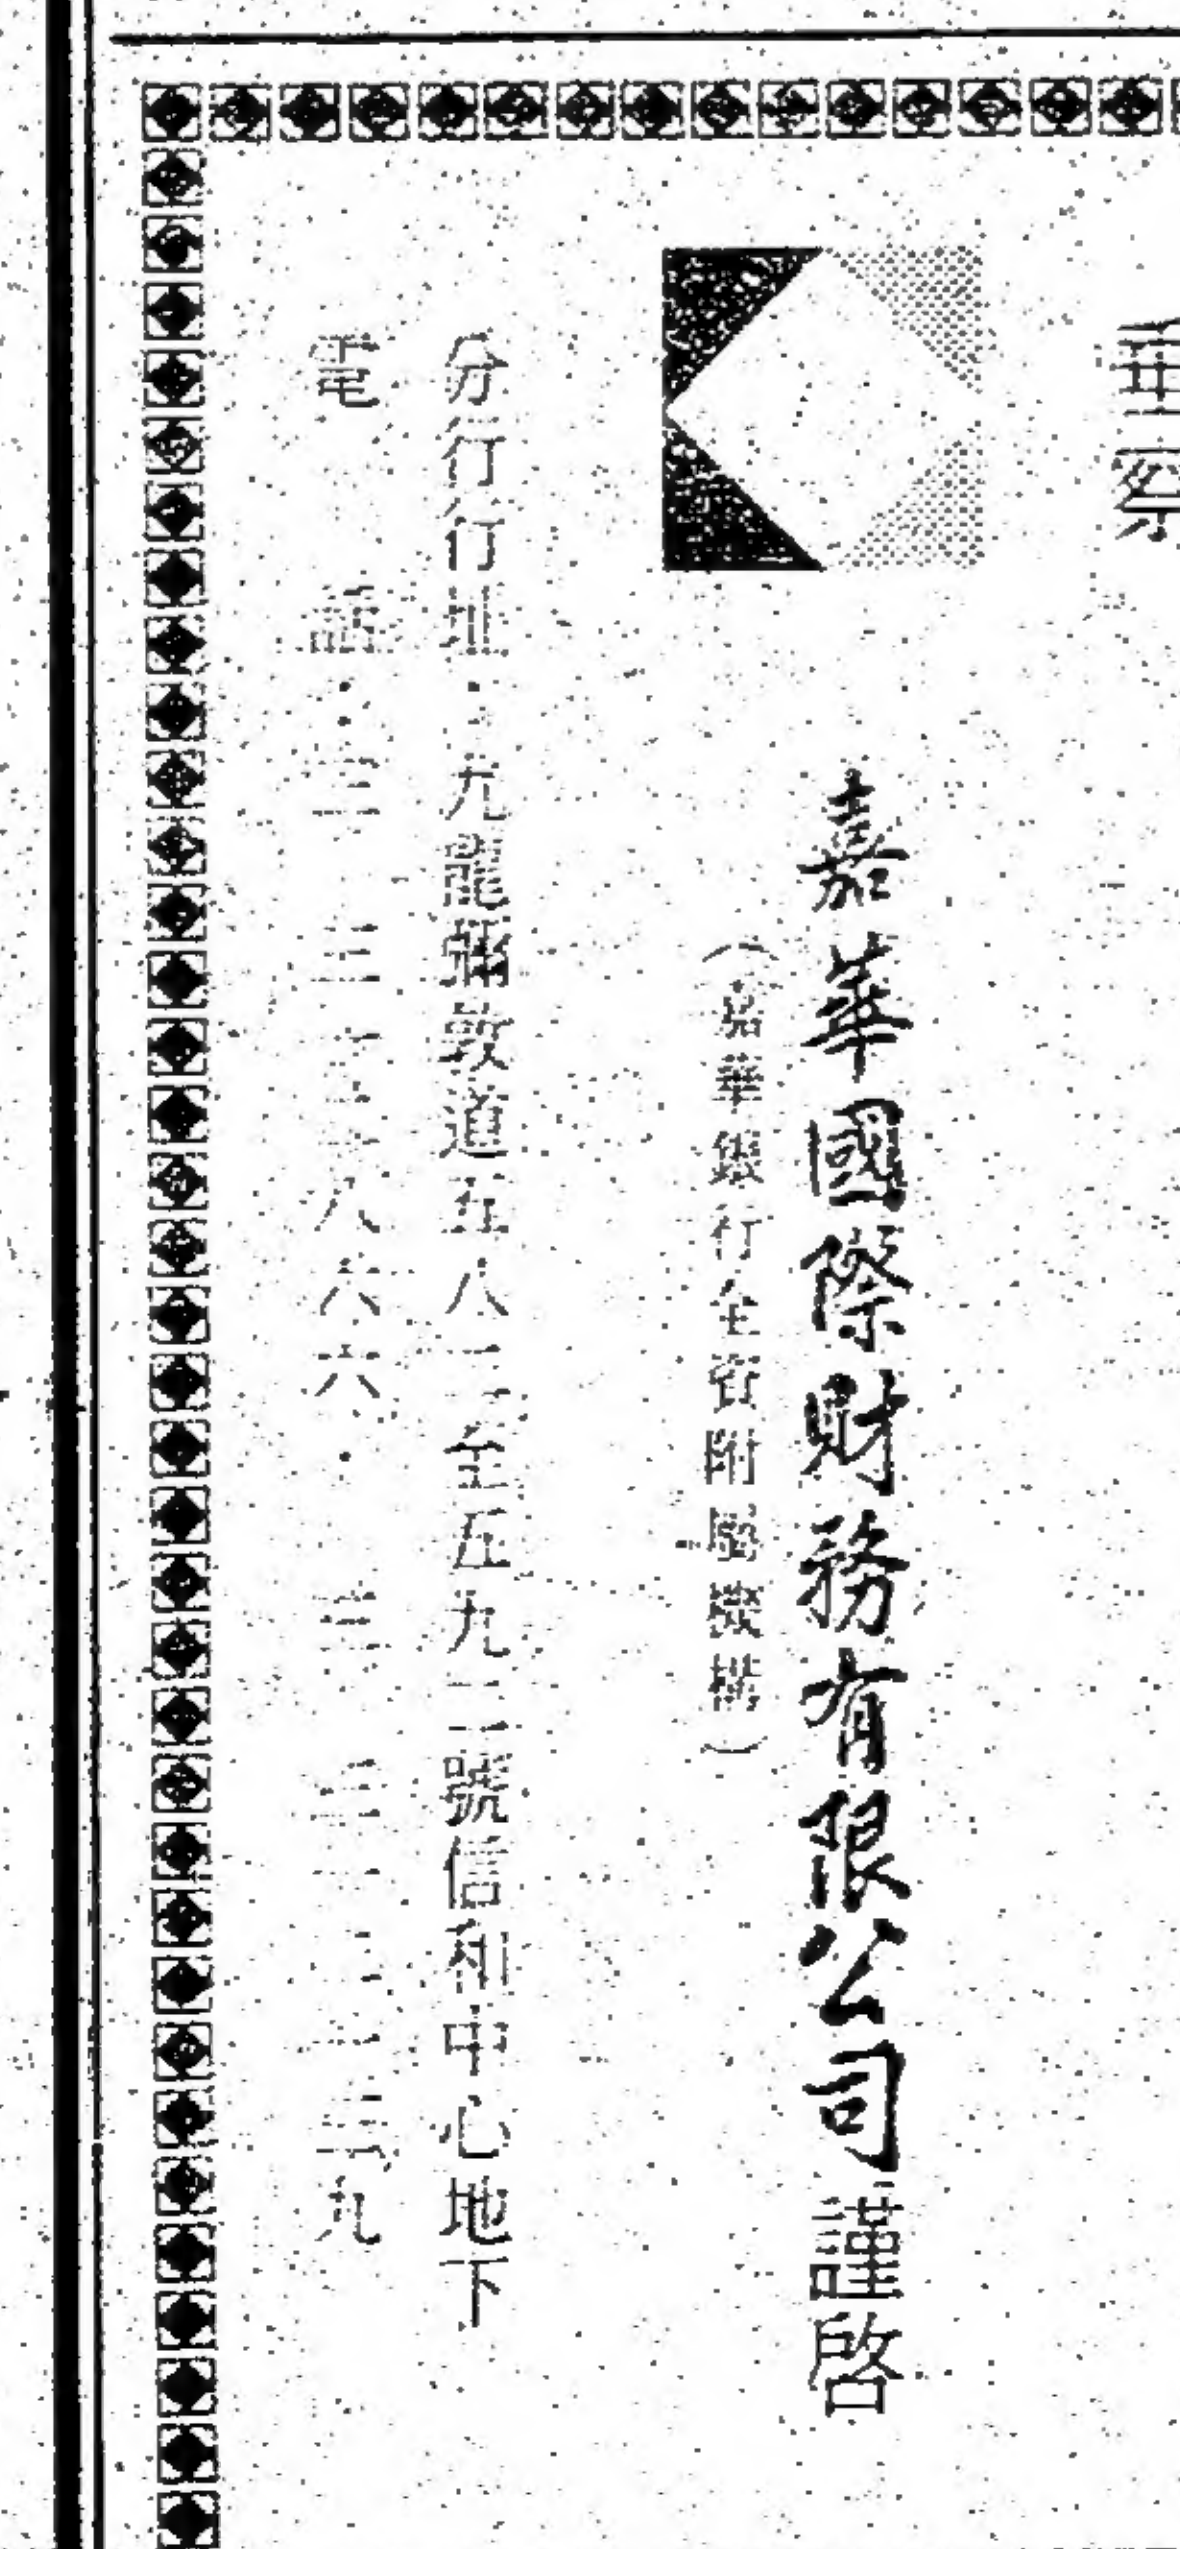 垂察
嘉華國際財務有限公司謹啓
（嘉華銀行全資附屬機構）
分行行址：九龍彌敦道五八三至五九三號信和中心地下
電話：三 八六六 九